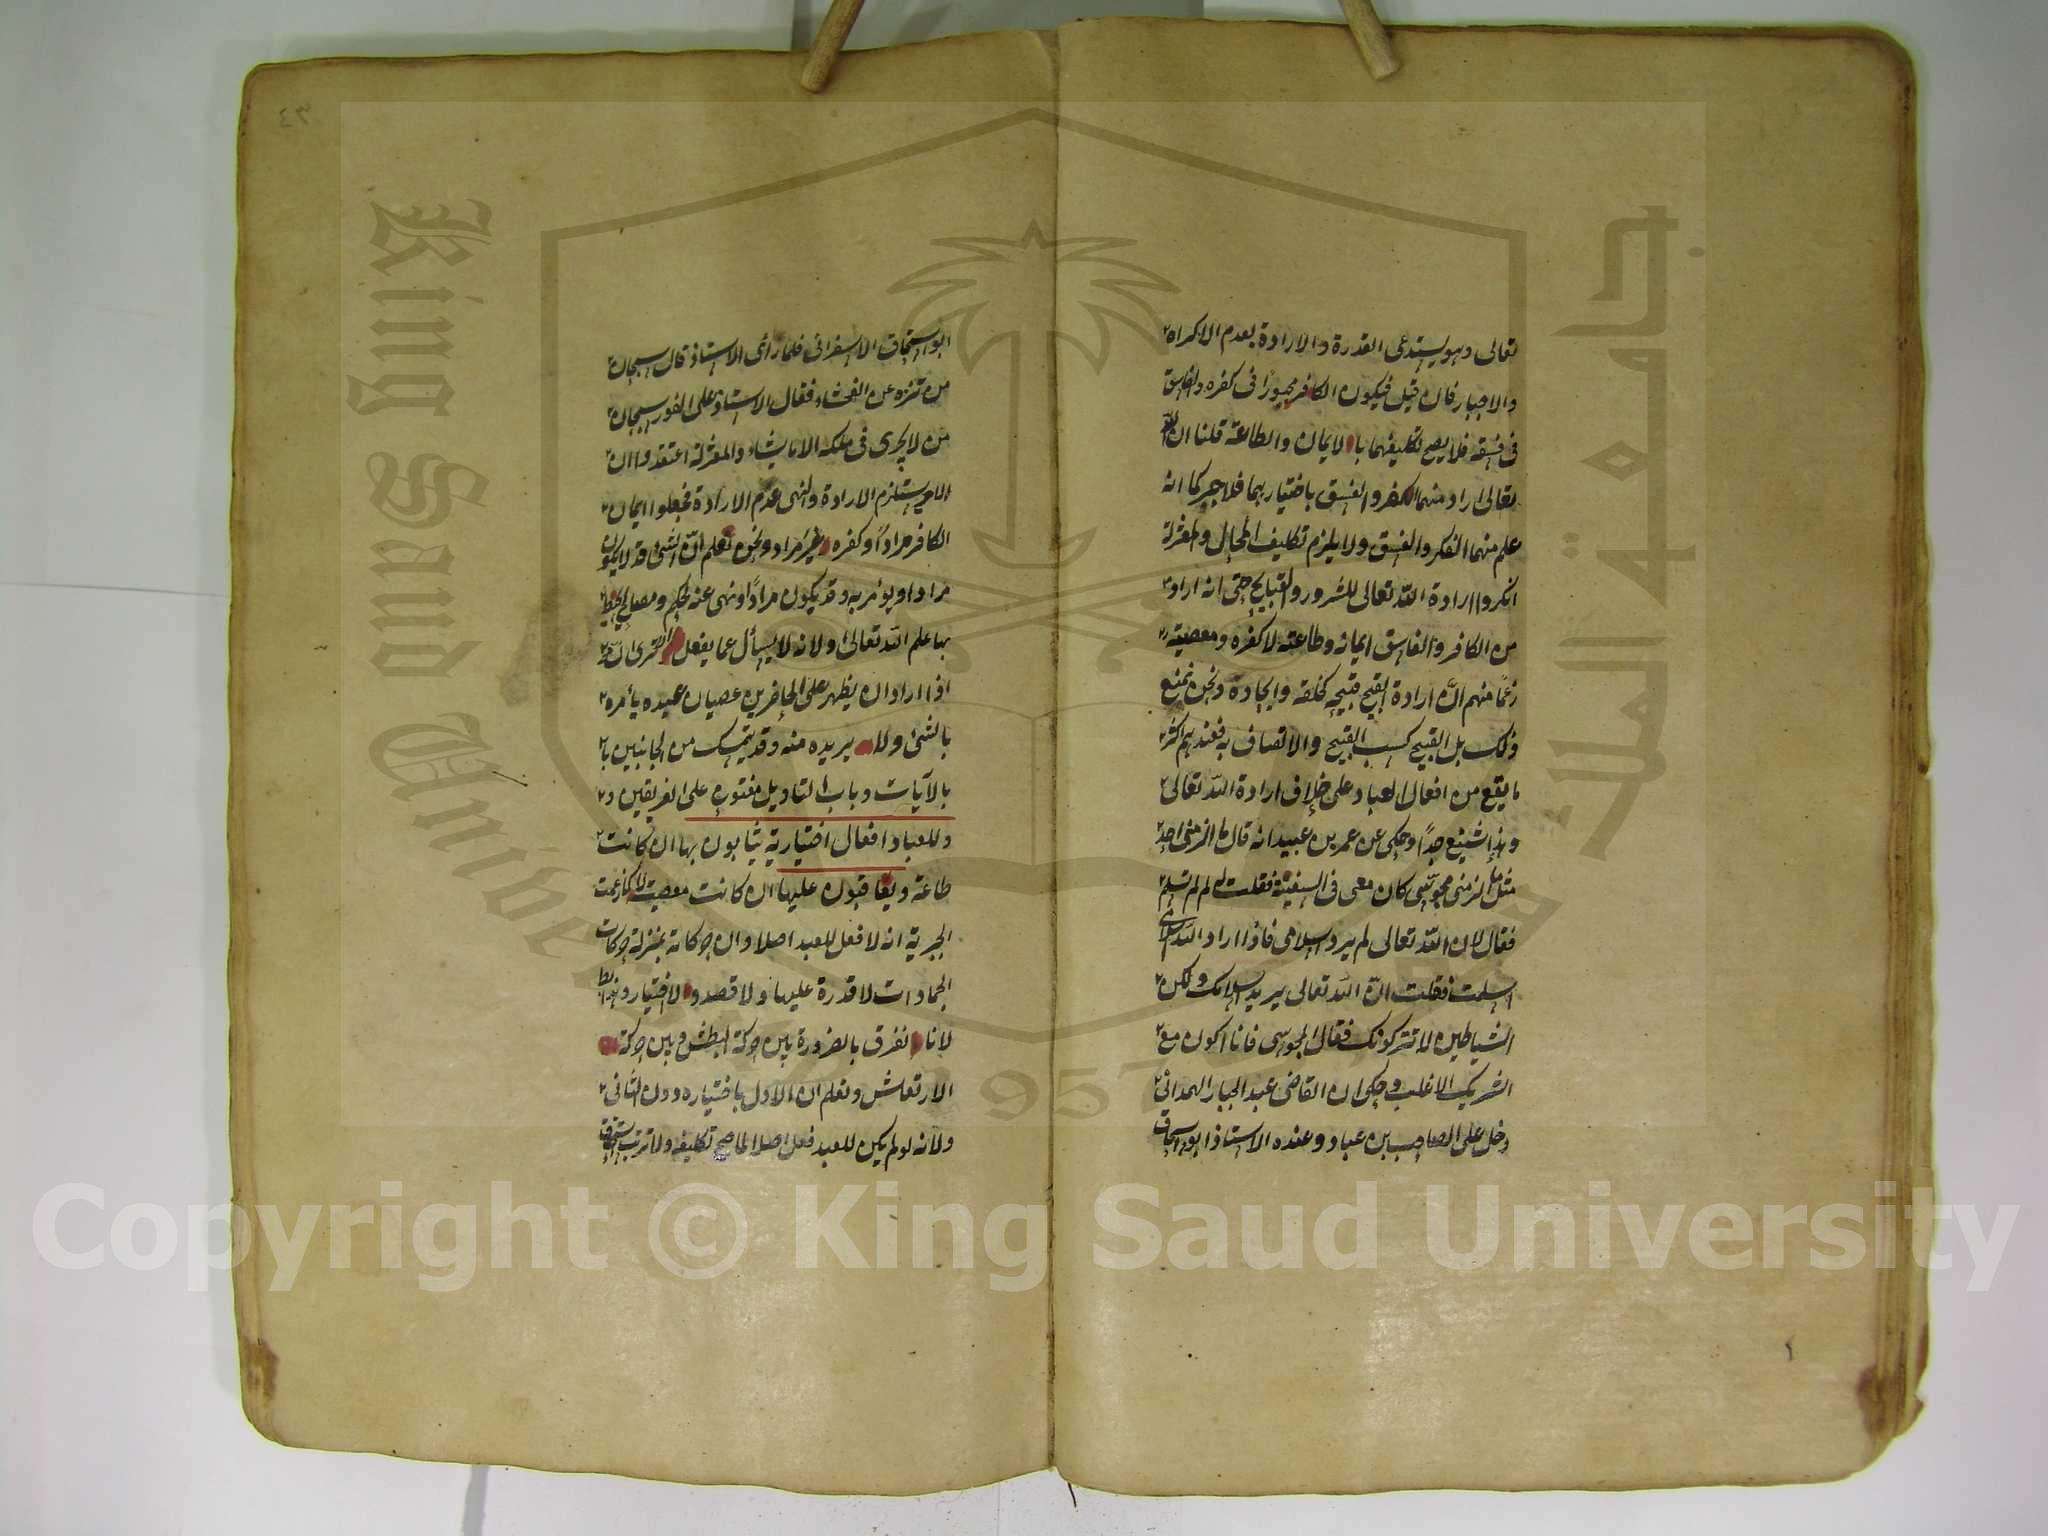 تعالى وهو يستدعى القدرة والارادة بعدم الاكراه
والاجبار فان قيل فيكون الكافر مجبورًا فى كفره والفاسق
فى فسقه فلا يصح تكليفهما بالايمان والطاعة قلنا ان الله
تعالى اراد منهما الكفر والفسق باختيارهما فلا جبر كما انه
علم منهما الكفر والفسق ولا يلزم تكليف المحال والمعتزلة
انكروا ارادة الله تعالى للشرور والقبايح حتى انه اراد
من الكافر والفاسق ايمانه وطاعته لا كفره ومعصيته
زعمًا منهم انّ ارادة القبيح قبيحه كخلقه وايجاده ونحن نمنع
ذلك بل القبيح كسب القبيح والاتصاف به فعندهم اكثر
ما يقع من افعال العباد على خلاف ارادة الله تعالى
وهذا شنيع جدًا وحكى عن عمر بن عبيد انه قال ما الزمنى احد
مثل ما الزمنى مجوسى كان معى فى السفينة فقلت له لم لم تسلم
فقال لان الله تعالى لم يرد اسلامى فاذا اراد الله اسلامى
اسلمت فقلت انّ الله تعالى يريد اسلامك ولكن
الشياطين لا تتركونك فقال المجوسى فانا اكون مع
الشريك الاغلب وحكى ان القاضى عبد الجبار الهمدانى
دخل على الصاحب بن عباد وعنده الاستاذ ابو اسحاق
٣٤
ابو اسحاق الاسفرانى فلما رأى الاستاذ قال سبحان
من تنزه عن الفحشاء فقال الاستاذ على الفور سبحان
من لا يجرى فى ملكه الا ما يشاء والمعتزلة اعتقدوا ان
الامر يستلزم الارادة والنهى عدم الارادة فجعلوا ايمان
الكافر مرادًا وكفره غير مراد ونحن نعلم انّ الشئ قد لا يكون
مرادا ويؤمر به وقد يكون مرادًا ونهى عنه لحكم ومصالح يحيط
بها علم الله تعالى او لانه لا يسأل عما يفعل الا ترى ان
اذا اراد ان يظهر على الحاضرين عصيان عبيده يأمره
بالشئ ولا يريده منه وقد يتمسك من الجانبين با
بالآيات وباب التاويل مفتوح على الفريقين و
وللعباد افعال اختيارية يثابون بها ان كانت
طاعة ويعاقبون عليها ان كانت معصية لا كما زعمت
الجبرية انه لا فعل للعبد اصلا وان حركاته بمنزلة حركات
الجمادات لا قدرة عليها ولا قصد ولا اختيار وهذا باطل
لانا نفرق بالضرورة بين حركة البطش وبين حركة
الارتعاش ونعلم ان الاول باختياره دون الثانى
ولانه لو لم يكن للعبد فعل اصلا لما صح تكليفه ولا ترتب استحقاق
Copyright © King Saud University
King Saud University
جامعة الملك
1957